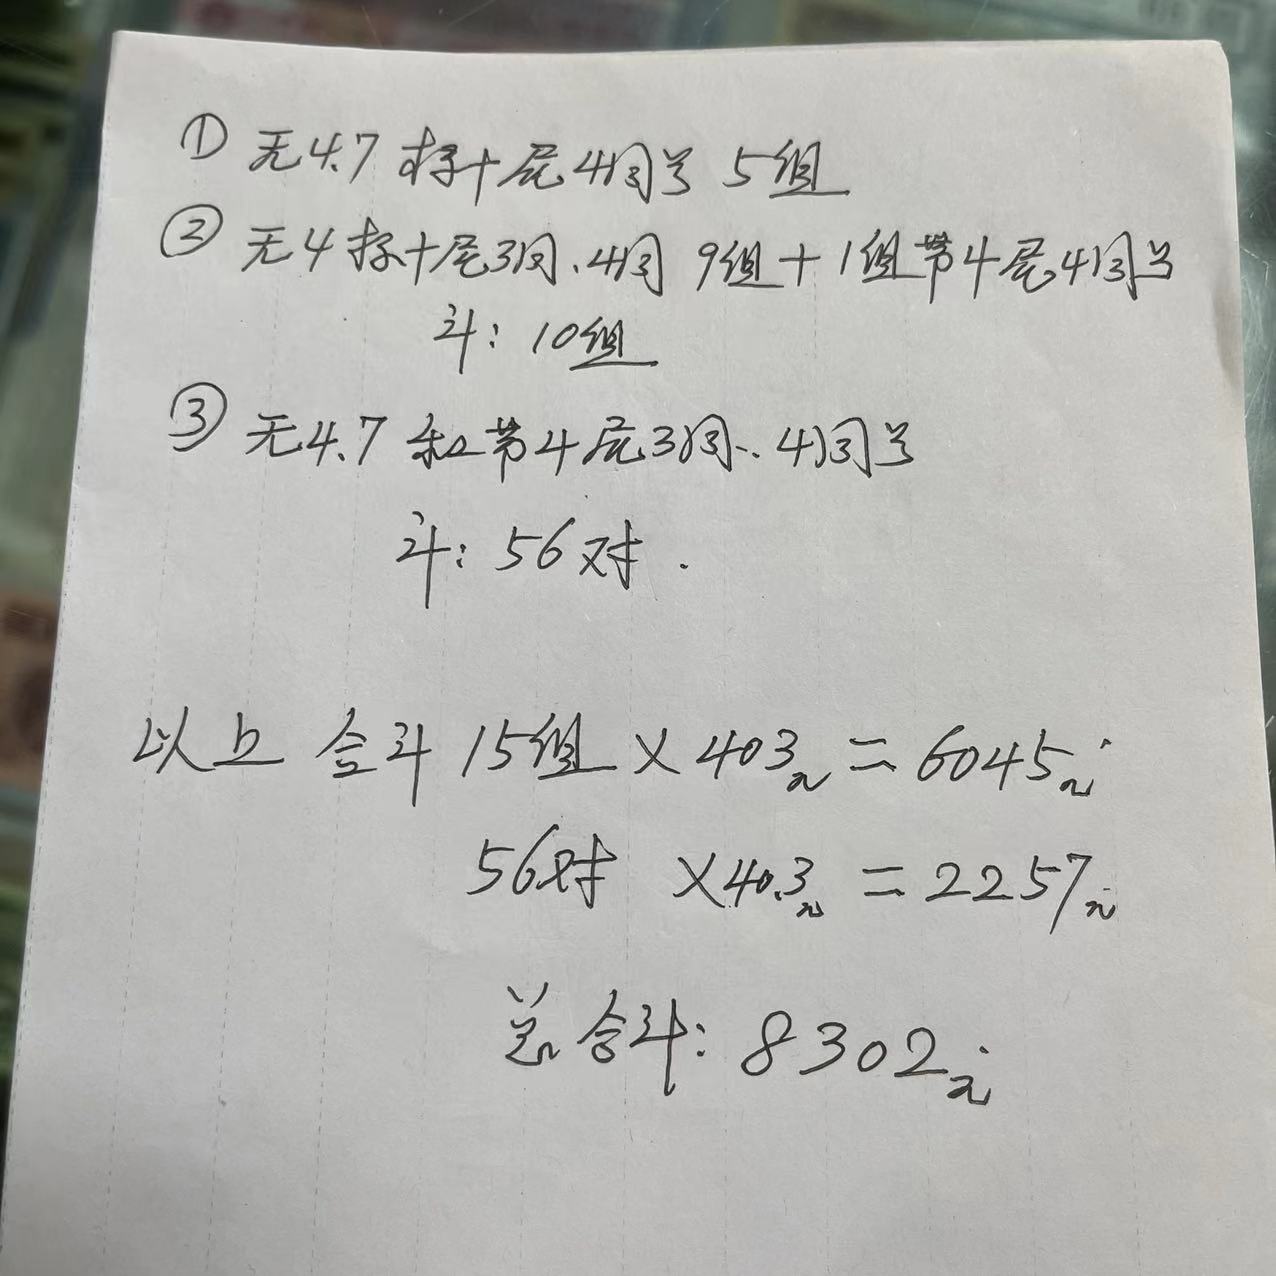 ① 无4.7 标十尾4同号 5组
② 无4标十尾3同、4同 9组+1组带4尾4同号
计: 10组
③ 无4.7 和带4尾3同、4同号
计: 56对.
以上 合计 15组×403元=6045元
56对 ×40.3元=2257元
总合计: 8302元